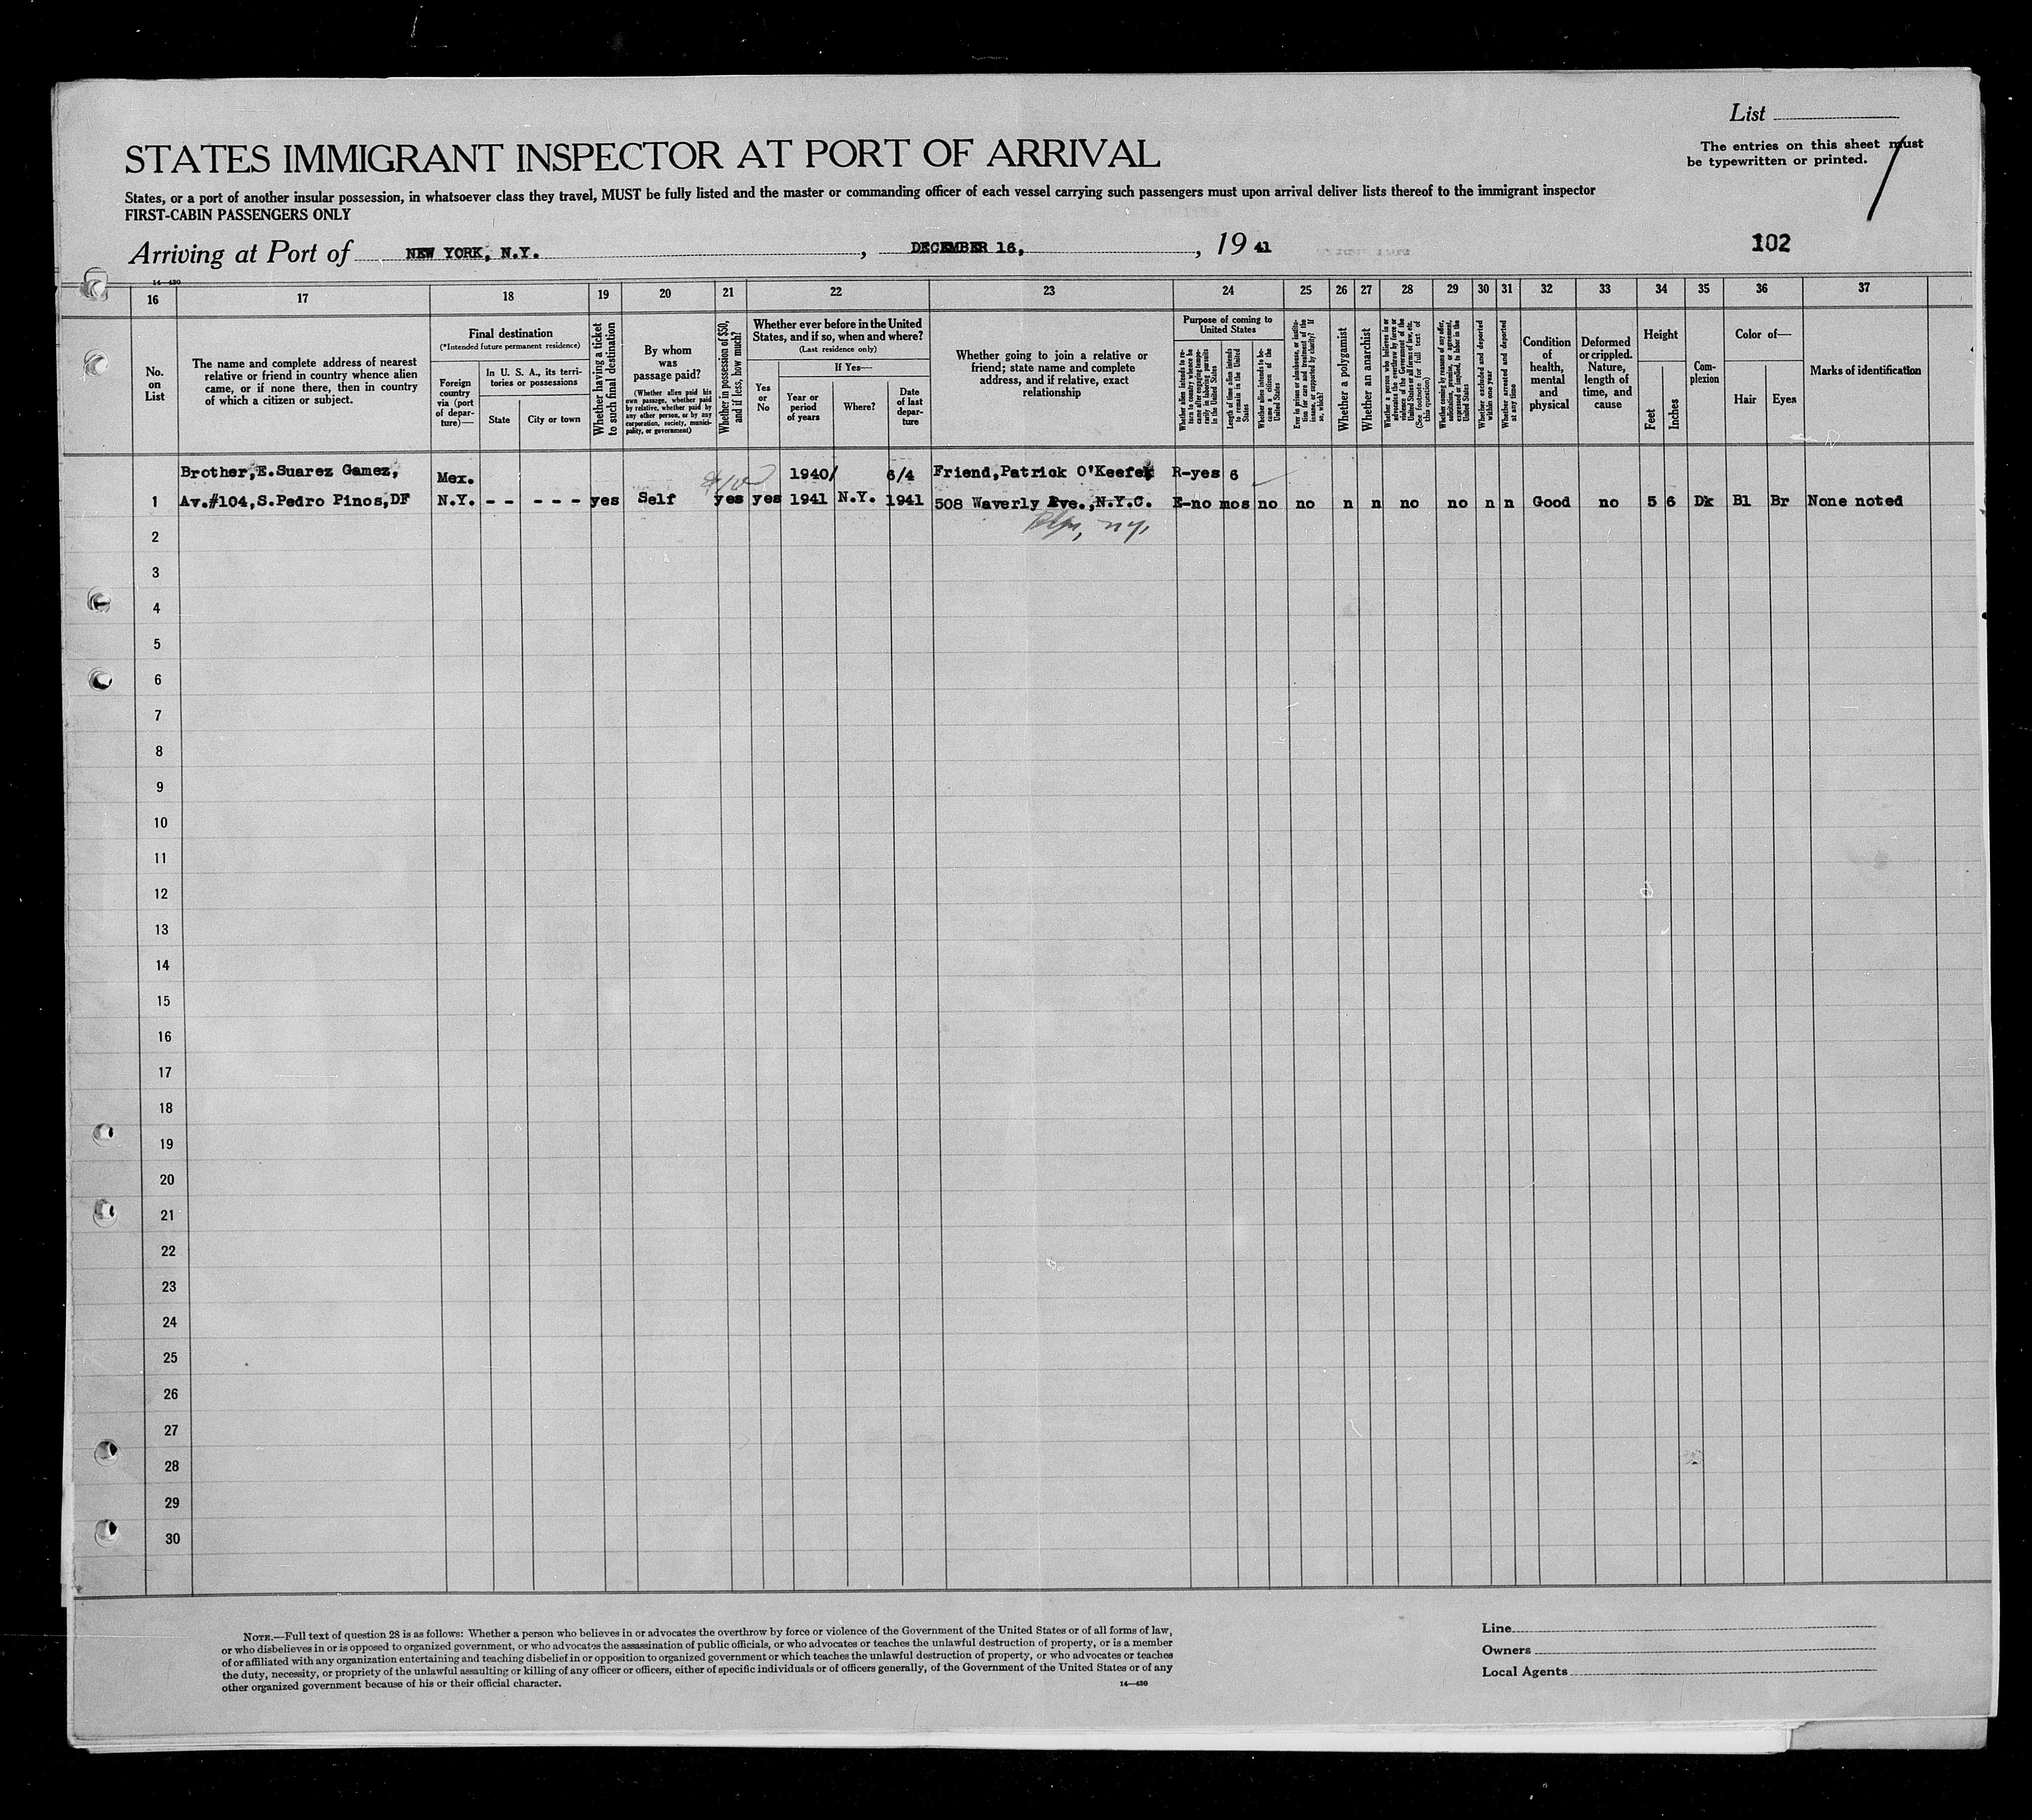 List
The entries on this sheet must
be typewritten or printed.
STATES IMMIGRANT INSPECTOR AT PORT OF ARRIVAL
States, or a port of another insular possession, in whatsoever class they travel, MUST be fully listed and the master or commanding officer of each vessel carrying such passengers must upon arrival deliver lists thereof to the immigrant inspector
FIRST-CABIN PASSENGERS ONLY
Arriving at Port of NEW YORK, N.Y. , DECEMBER 16, , 19 41
102
14—430
16 17 18 19 20 21 22 23 24 25 26 27 28 29 30 31 32 33 34 35 36 37
No.
on
List
The name and complete address of nearest
relative or friend in country whence alien
came, or if none there, then in country
of which a citizen or subject.
Final destination
(*Intended future permanent residence)
Foreign
country
via (port
of depar-
ture)—
In U. S. A., its terri-
tories or possessions
State
City or town
Whether having a ticket
to such final destination
By whom
was
passage paid?
(Whether alien paid his
own passage, whether paid
by relative, whether paid by
any other person, or by any
corporation, society, munici-
pality, or government)
Whether in possession of $50,
and if less, how much?
Whether ever before in the United
States, and if so, when and where?
(Last residence only)
Yes
or
No
If Yes—
Year or
period
of years
Where?
Date
of last
depar-
ture
Whether going to join a relative or
friend; state name and complete
address, and if relative, exact
relationship
Purpose of coming to
United States
Whether alien intends to re-
turn to country whence he
came after engaging tempo-
rarily in laboring pursuits
in the United States
Length of time alien intends
to remain in the United
States
Whether alien intends to be-
come a citizen of the
United States
Ever in prison or almshouse, or institu-
tion for care and treatment of the
insane, or supported by charity? If
so, which?
Whether a polygamist
Whether an anarchist
Whether a person who believes in or
advocates the overthrow by force or
violence of the Government of the
United States or all forms of law, etc.
(See footnote for full text of
this question)
Whether coming by reason of any offer,
solicitation, promise, or agreement,
expressed or implied, to labor in the
United States
Whether excluded and deported
within one year
Whether arrested and deported
at any time
Condition
of
health,
mental
and
physical
Deformed
or crippled.
Nature,
length of
time, and
cause
Height
Feet
Inches
Com-
plexion
Color of—
Hair
Eyes
Marks of identification
Brother,E.Suarez Gamez, Mex. 1940/ 6/4 Friend,Patrick O'Keefe R-yes 6
1 Av.#104,S.Pedro Pinos,DF N.Y. - - - - - yes Self yes yes 1941 N.Y. 1941 508 Waverly Ave.,N.Y.C. E-no mos no no n n no no n n Good no 5 6 Dk Bl Br None noted
2
3
4
5
6
7
8
9
10
11
12
13
14
15
16
17
18
19
20
21
22
23
24
25
26
27
28
29
30
NOTE.—Full text of question 28 is as follows: Whether a person who believes in or advocates the overthrow by force or violence of the Government of the United States or of all forms of law,
or who disbelieves in or is opposed to organized government, or who advocates the assassination of public officials, or who advocates or teaches the unlawful destruction of property, or is a member
of or affiliated with any organization entertaining and teaching disbelief in or opposition to organized government or which teaches the unlawful destruction of property, or who advocates or teaches
the duty, necessity, or propriety of the unlawful assaulting or killing of any officer or officers, either of specific individuals or of officers generally, of the Government of the United States or of any
other organized government because of his or their official character.
14—430
Line
Owners
Local Agents